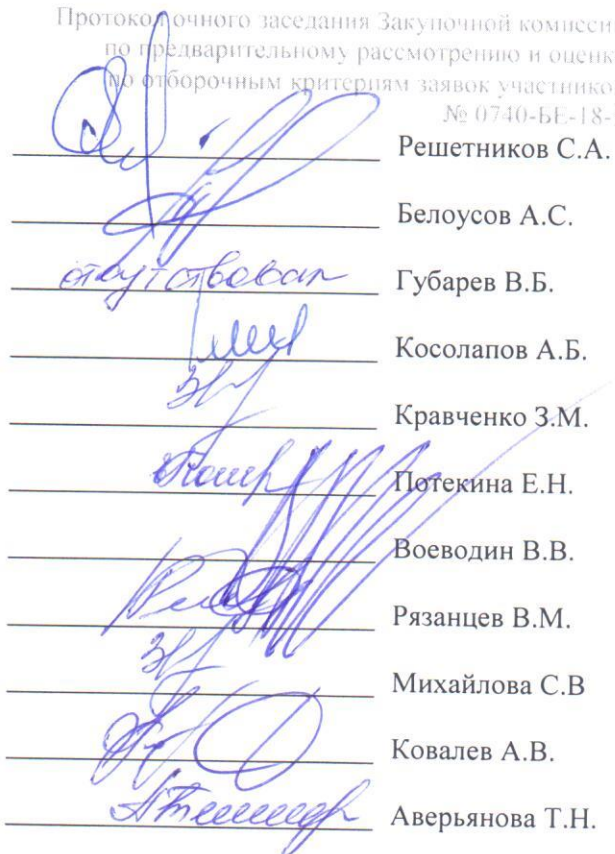 Протокол очного заседания Закупочной комисси
по предварительному рассмотрению и оценк
по отборочным критериям заявок участнико
№ 0740-БЕ-18-
Решетников С.А.
Белоусов А.С.
отсутствовал Губарев В.Б.
Косолапов А.Б.
Кравченко З.М.
Потекина Е.Н.
Воеводин В.В.
Рязанцев В.М.
Михайлова С.В
Ковалев А.В.
Аверьянова Т.Н.